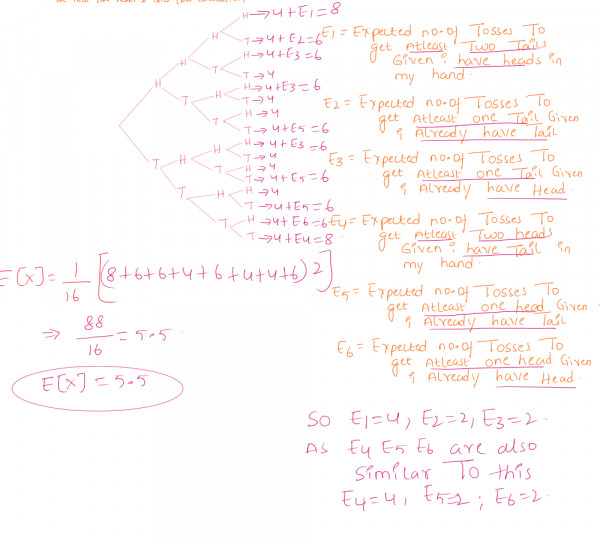 H→4+E1=8
T→4+E2=6
H→4+E3=6
T→4
H→4+E3=6
T→4
H→4
T→4+E5=6
H→4+E3=6
T→4
T→4+E5=6
H→4
T→4+E5=6
H→4+E6=6
T→4+E4=8
H
T
H
T
H
T
H
T
H
T
H
T
H
T
E1= Expected no.of Tosses To
get Atleast Two Tails
Given i have heads in
my hand.
E2= Expected no.of Tosses To
get Atleast one Tail Given
i Already have Tail
E3= Expected no.of Tosses To
get Atleast one Tail Given
i Already have Head.
E4= Expected no.of Tosses To
get Atleast Two heads
Given i have Tail in
my hand
E5= Expected no.of Tosses To
get Atleast one head Given
i Already have Tail
E6= Expected no.of Tosses To
get Atleast one head Given
i Already have Head.
E[X]= 1/16 [(8+6+6+4+6+4+4+6)2]
⇒ 88/16 = 5.5.
E[X]=5.5
So E1=4, E2=2, E3=2.
As E4 E5 E6 are also
Similar To this
E4=4, E5=2; E6=2.